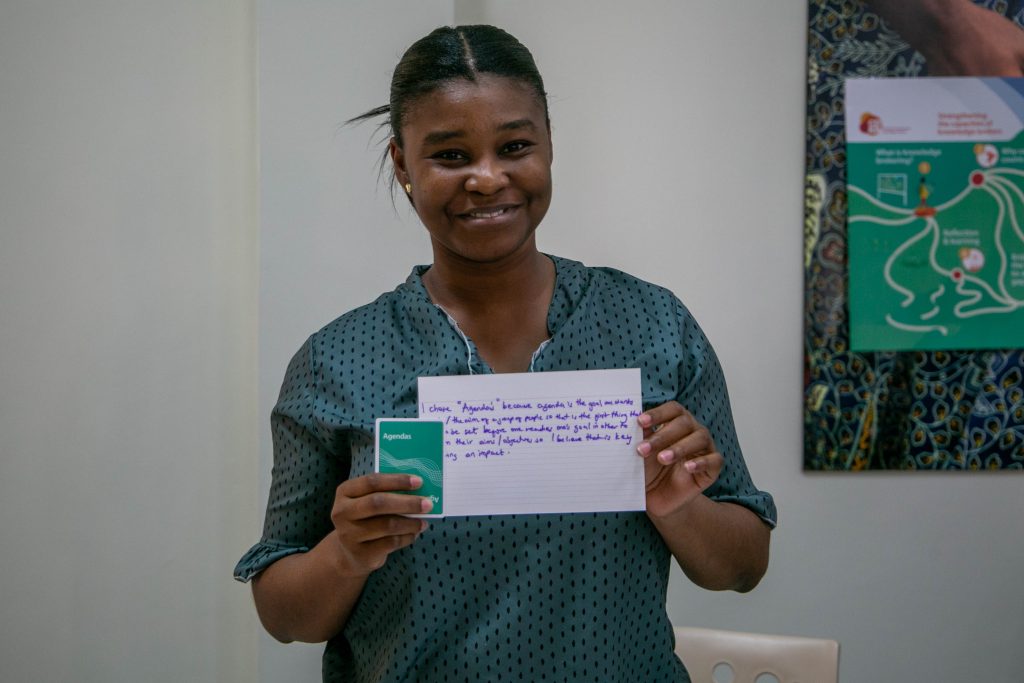 I chose "Agendas" because agenda is the goal, one wants
/ the aim of a group of people so that is the first thing that
be set before one reaches one's goal in other to
their aims / objectives so I believe that is key
an impact.
Agendas
Strengthening
the capacities of
knowledge brokers
What is knowledge
brokering?
Reflection
& learning